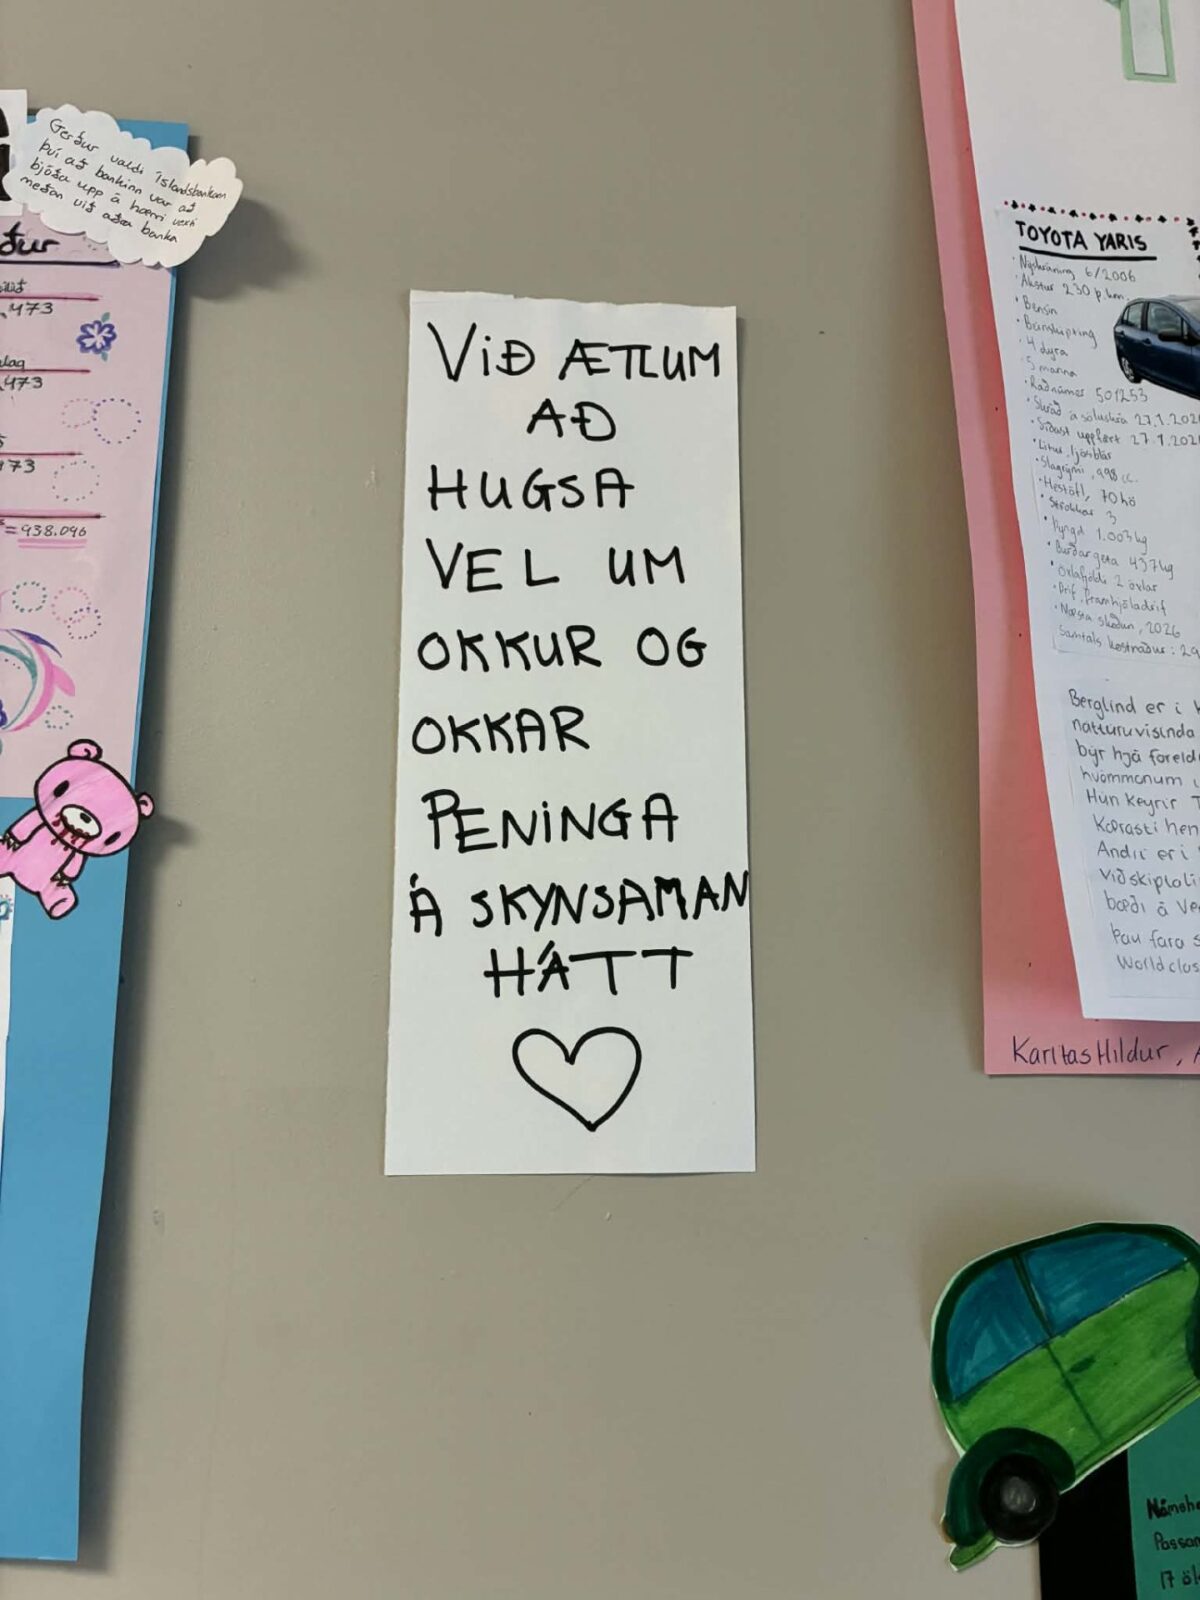 Gerður valdi Íslandsbankann
því að bankinn var að
bjóða upp á hærri vexti
meðan við aðra banka
ður
473
473
473
= 938.096
VIÐ ÆTLUM
AÐ
HUGSA
VEL UM
OKKUR OG
OKKAR
PENINGA
Á SKYNSAMAN
HÁTT
TOYOTA YARIS
Nýskráning 6/2006
Akstur 230 þ.km.
Bensín
Beinskipting
4 dyra
5 manna
Raðnúmer 501253
Skráð á söluskrá 27.1.202
Síðast uppfært 27.1.202
Litur, ljósblár
Slagrými, 998 cc.
Hestöfl, 70 hö
Strokkar 3
Þyngd 1.003 kg
Burðargeta 437 kg
Öxlafjöldi 2 öxlar
Drif, framhjóladrif
Næsta skoðun, 2026
Samtals kostnaður: 29
Berglind er í
natturuvisinda
býr hjá foreld
hvömmonum
Hún keyrir T
Kærasti hen
Andri er í
viðskiptoli
bæði á Ve
Þau fara s
World clas
Karitas Hildur, A
Námshe
Passar
17 öl